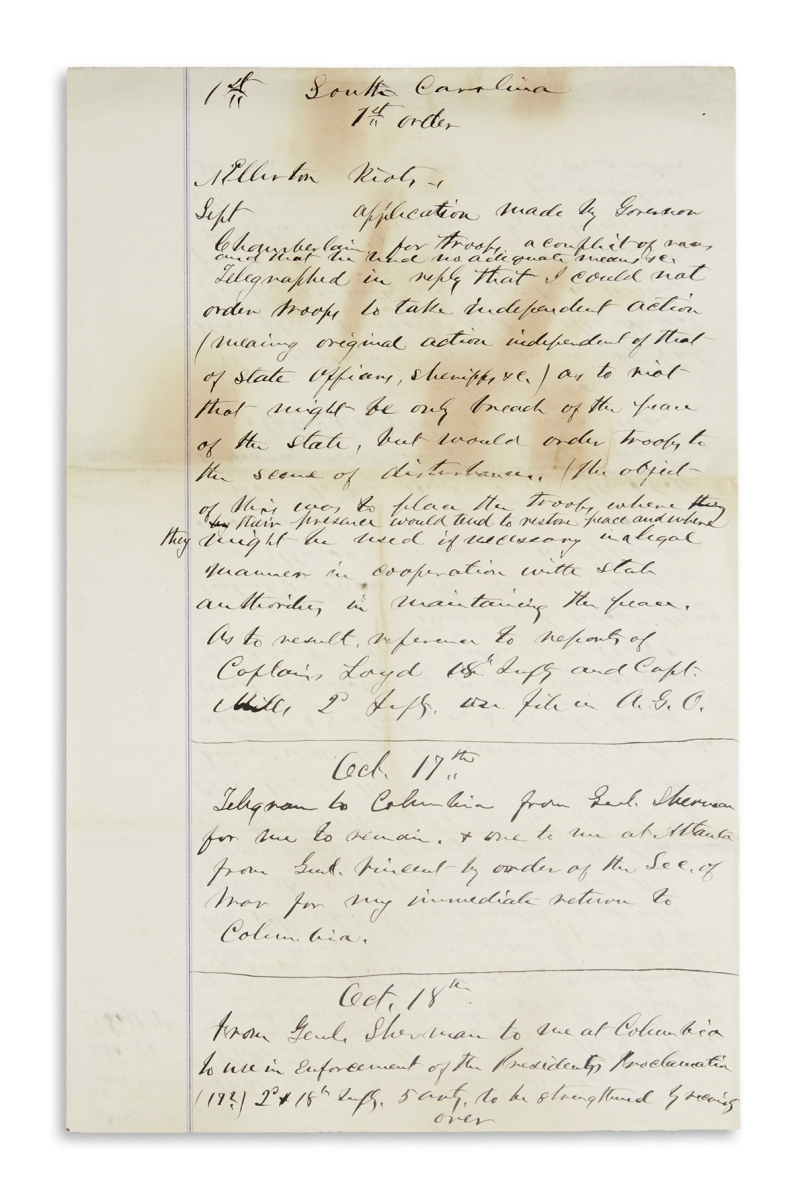 1st South Carolina
1st order
Ellerton Riots
Sept application made by Governor
Chamberlain for troops, a conflict of races
and that he had no adequate means &c.
Telegraphed in reply that I could not
order troops to take independent action
(meaning original action independent of that
of State Officers, sheriffs &c.) as to riot
that might be only breach of the peace
of the State, but would order troops to
the scene of disturbance. (The object
of this was to place the troops where they
their presence would tend to restore peace and where
they might be used if necessary in a legal
manner in cooperation with State
authorities in maintaining the peace.
As to result, reference to reports of
Captains Loyd 18th Infty and Capt.
Mills 2d Infty. on file in A.G.O.
Oct. 17th
Telegram to Columbia from Genl. Sherman
for me to remain. & one to me at Atlanta
from Genl. Vincent by order of the Sec. of
War for my immediate return to
Columbia.
Oct. 18th
From Genl. Sherman to me at Columbia
to use in Enforcement of the Presidents Proclamation
(17?) 2d & 18th Infty. 5 arty. to be strengthened by
over